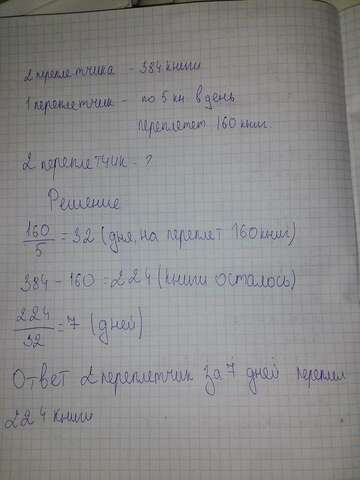 2 переплетчика - 384 книги
1 переплетчик - по 5 кн. в день
переплетет 160 книг.
2 переплетчик - ?
Решение
160/5 = 32 (дня, на переплет 160 книг)
384 - 160 = 224 (книги осталось)
224/32 = 7 (дней)
Ответ 2 переплетчик за 7 дней переплел
224 книги